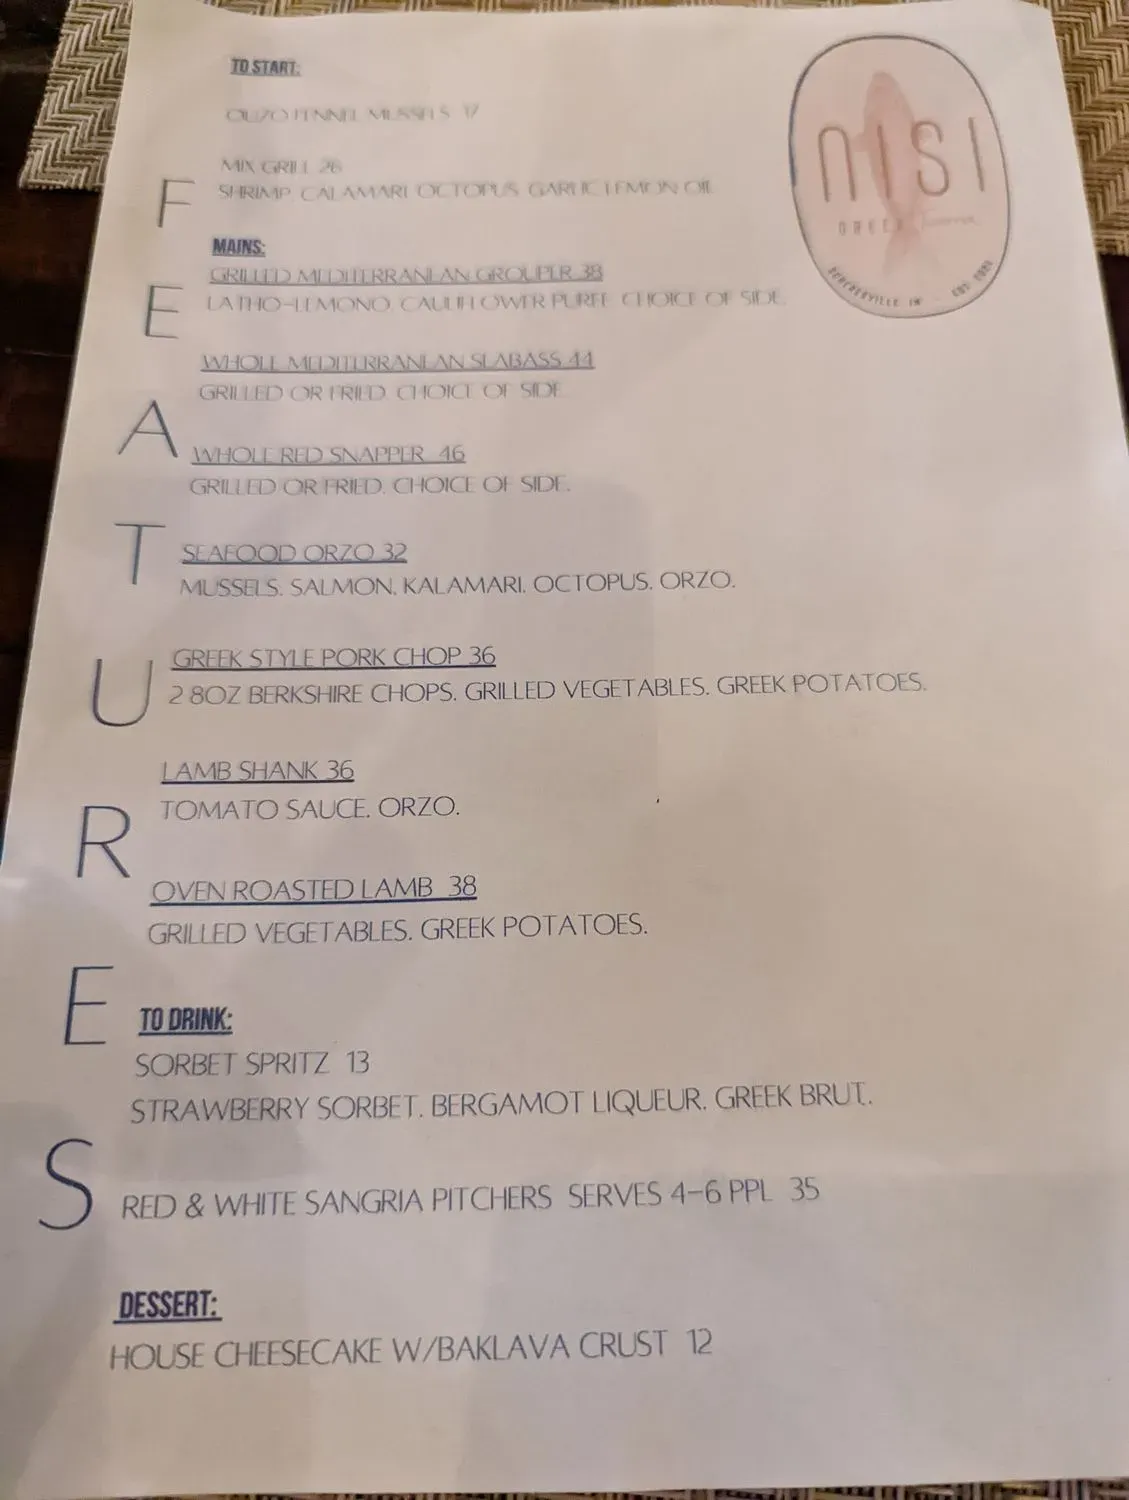 TO START:
OUZO FENNEL MUSSELS 17
MIX GRILL 26
SHRIMP. CALAMARI. OCTOPUS. GARLIC LEMON OIL
MAINS:
GRILLED MEDITERRANEAN GROUPER 38
LATHO-LEMONO. CAULIFLOWER PUREE. CHOICE OF SIDE.
WHOLE MEDITERRANEAN SEABASS 44
GRILLED OR FRIED. CHOICE OF SIDE.
WHOLE RED SNAPPER 46
GRILLED OR FRIED. CHOICE OF SIDE.
SEAFOOD ORZO 32
MUSSELS. SALMON. KALAMARI. OCTOPUS. ORZO.
GREEK STYLE PORK CHOP 36
2 8OZ BERKSHIRE CHOPS. GRILLED VEGETABLES. GREEK POTATOES.
LAMB SHANK 36
TOMATO SAUCE. ORZO.
OVEN ROASTED LAMB 38
GRILLED VEGETABLES. GREEK POTATOES.
TO DRINK:
SORBET SPRITZ 13
STRAWBERRY SORBET. BERGAMOT LIQUEUR. GREEK BRUT.
RED & WHITE SANGRIA PITCHERS SERVES 4-6 PPL 35
DESSERT:
HOUSE CHEESECAKE W/BAKLAVA CRUST 12
FEATURES
NISI
GREEK Taverna
SCHERERVILLE IN